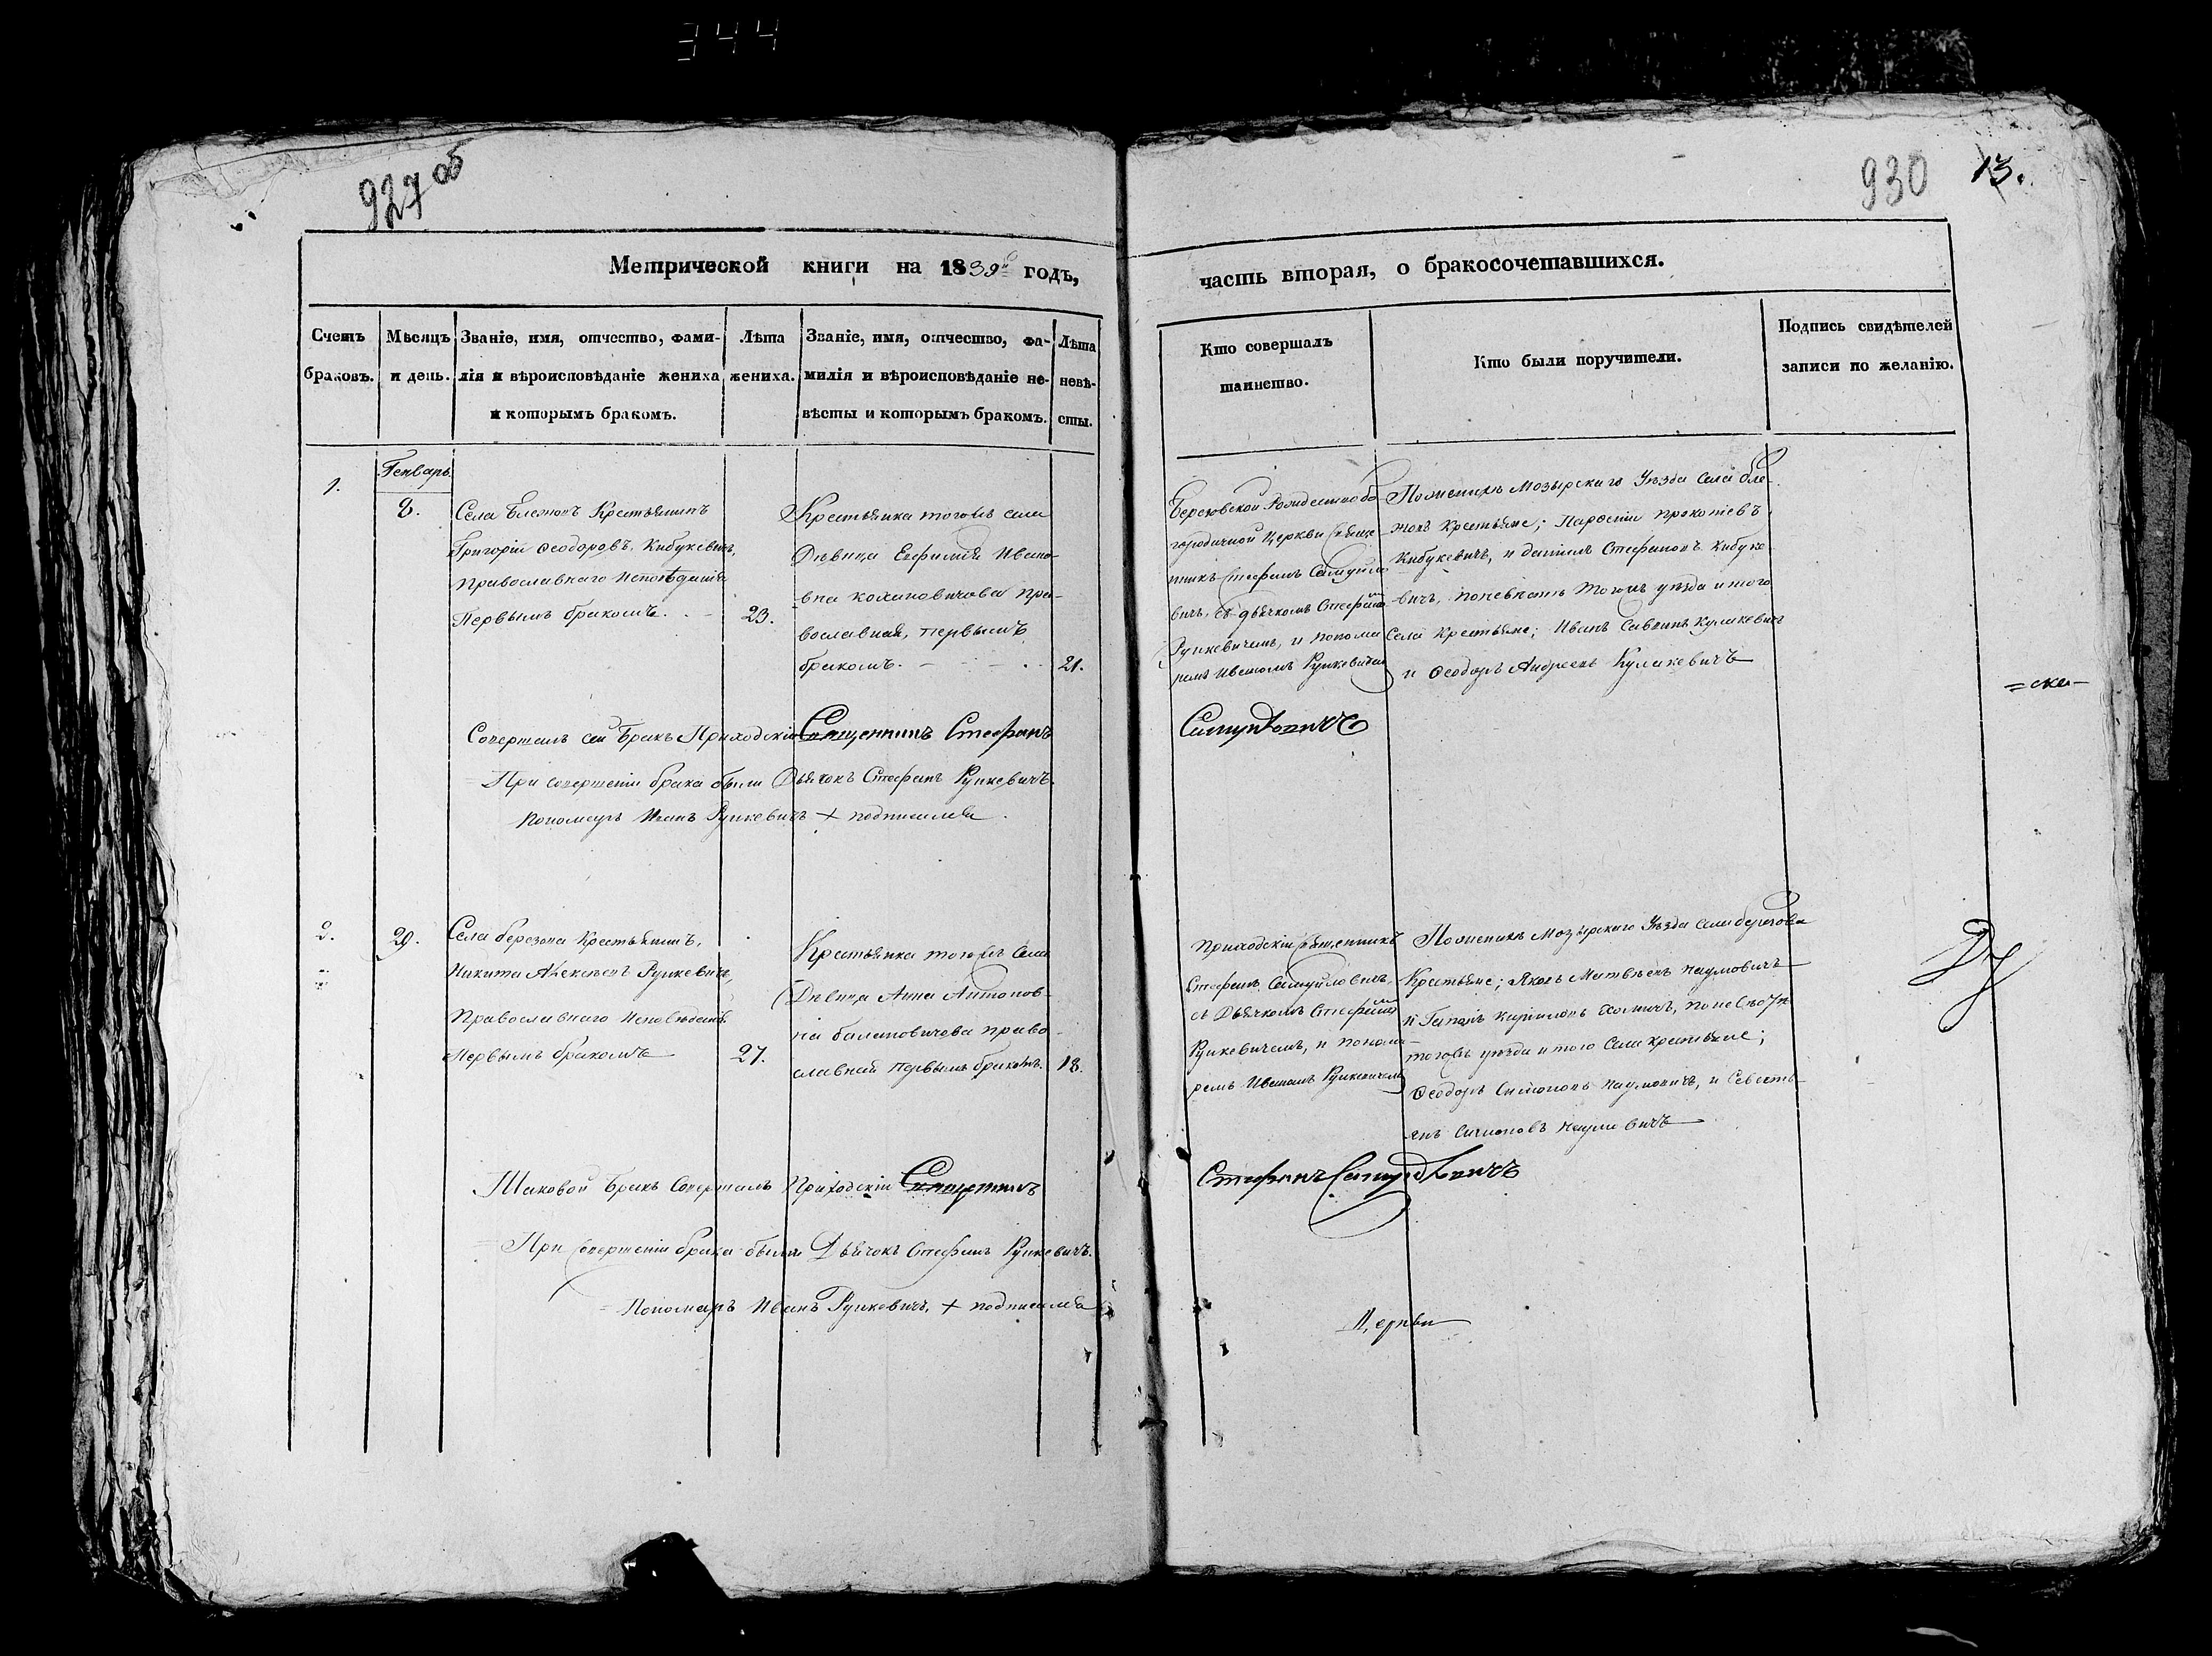 344
927 об
930 13.
Метрической книги на 1839й годъ,
часть вторая, о бракосочетавшихся.
Счетъ браковъ.
Мѣсяцъ и день.
Званіе, имя, отчество, фами-
лія и вѣроисповѣданіе жениха
и которымъ бракомъ.
Лѣта жениха.
Званіе, имя, отчество, фа-
милія и вѣроисповѣданіе не-
вѣсты и которымъ бракомъ.
Лѣта
невѣ-
сты.
Кто совершалъ
таинство.
Кто были поручители.
Подпись свидѣтелей
записи по желанію.
1.
Генварь
8.
Села Крестьянинъ
Григорій Ѳеодоровъ Кибукевичъ,
Православнаго Исповѣданія
Первымъ бракомъ.
23.
Крестьянка тогожъ села
Дѣвица Евфимія Ивано-
вна пра-
вославная, первымъ
бракомъ.
21.
Рождество бо-
городичной Церкви Свяще-
нникъ Стефанъ Самуйло
вичъ, съ дьячкомъ Стефаномъ
Рункевичемъ, и понома
ремъ Иваномъ Рункевичемъ
По женихѣ Мозырскаго Уѣзда Села
Крестьяне; Парѳеній Прокопіевъ
Кибукевичъ, и Даніилъ Стефановъ Кибуке-
вичъ, по невѣстѣ тогожъ уѣзда и того
Села Крестьяне; Иванъ Саввинъ Куликевич
и Ѳеодоръ Андреевъ Куликевичъ
=ска-
Совершалъ сей Бракъ Приходскій Священникъ Стефанъ
Самуйловичъ
При совершеніи брака были Дьячокъ Стефанъ Рункевичъ.
Пономарь Иванъ Рункевичъ + подписалися
2.
29.
Села Березова Крестьянинъ,
Никита Алексѣевъ Рункевичъ,
Православнаго Исповѣдані.
Первымъ бракомъ
27.
Крестьянка тогожъ Села
Дѣвица Анна Антонов-
на балановичова право
славная первымъ бракомъ.
18.
Приходскій Священникъ
Стефанъ Самуйловичъ,
съ Дьячкомъ Стефаномъ
Рункевичемъ, и понома-
ремъ Иваномъ Рункевичемъ
По женихѣ Мозырскаго Уѣзда Села березова
Крестьяне; Яковъ Матвѣевъ Наумовичъ
и Кириловъ по невѣстѣ
тогожъ уѣзда и того Села крестьяне;
Ѳеодоръ Симоновъ Наумовичъ, и Севасть-
янъ Симоновъ Наумовичъ
Таковой Бракъ Совершалъ Приходскій Священникъ
Стефанъ Самуйловичъ
При Совершеніи брака были Дьячокъ Стефанъ Рункевичъ.
Пономарь Иванъ Рункевичъ, + подписалися
Церкви